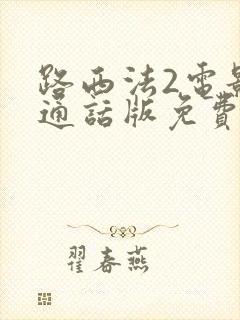 路西法2電影
通話版免費
翟春燕